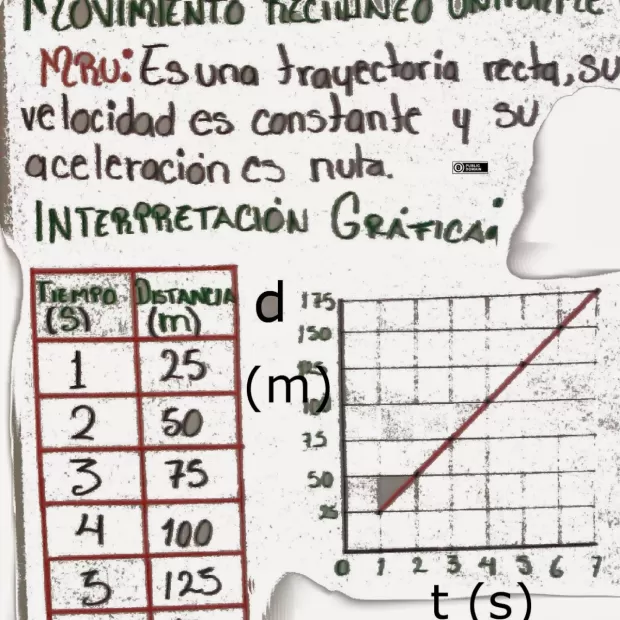 MOVIMIENTO RECTILINEO UNIFORME
MRU: Es una trayectoria recta, su
velocidad es constante y su
aceleración es nula.
INTERPRETACIÓN GRÁFICA:
TIEMPO (S) DISTANCIA (m)
1 25
2 50
3 75
4 100
5 125
d
(m)
175
150
125
100
75
50
25
0 1 2 3 4 5 6 7
t (s)
PUBLIC DOMAIN